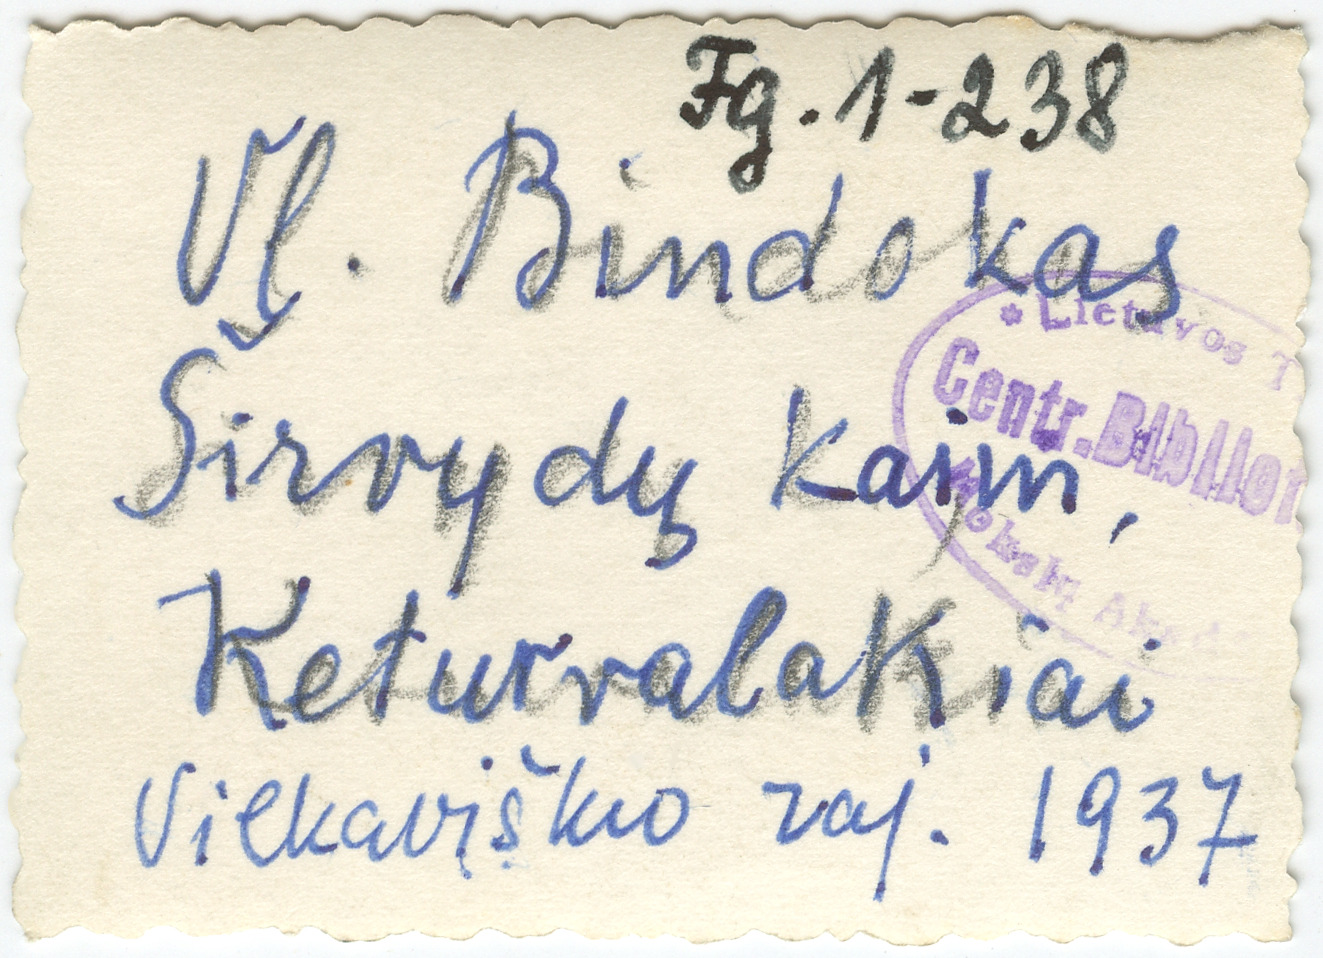 Fg. 1-238
Vl. Bindokas
Širvydų kaim,
Keturvalakiai
Vilkaviškio raj. 1937
* Lietuvos T
Centr. Bibliot
Mokslų Akade